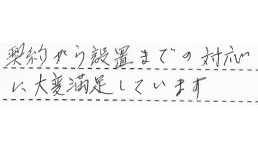 契約から設置までの対応
に大変満足しています